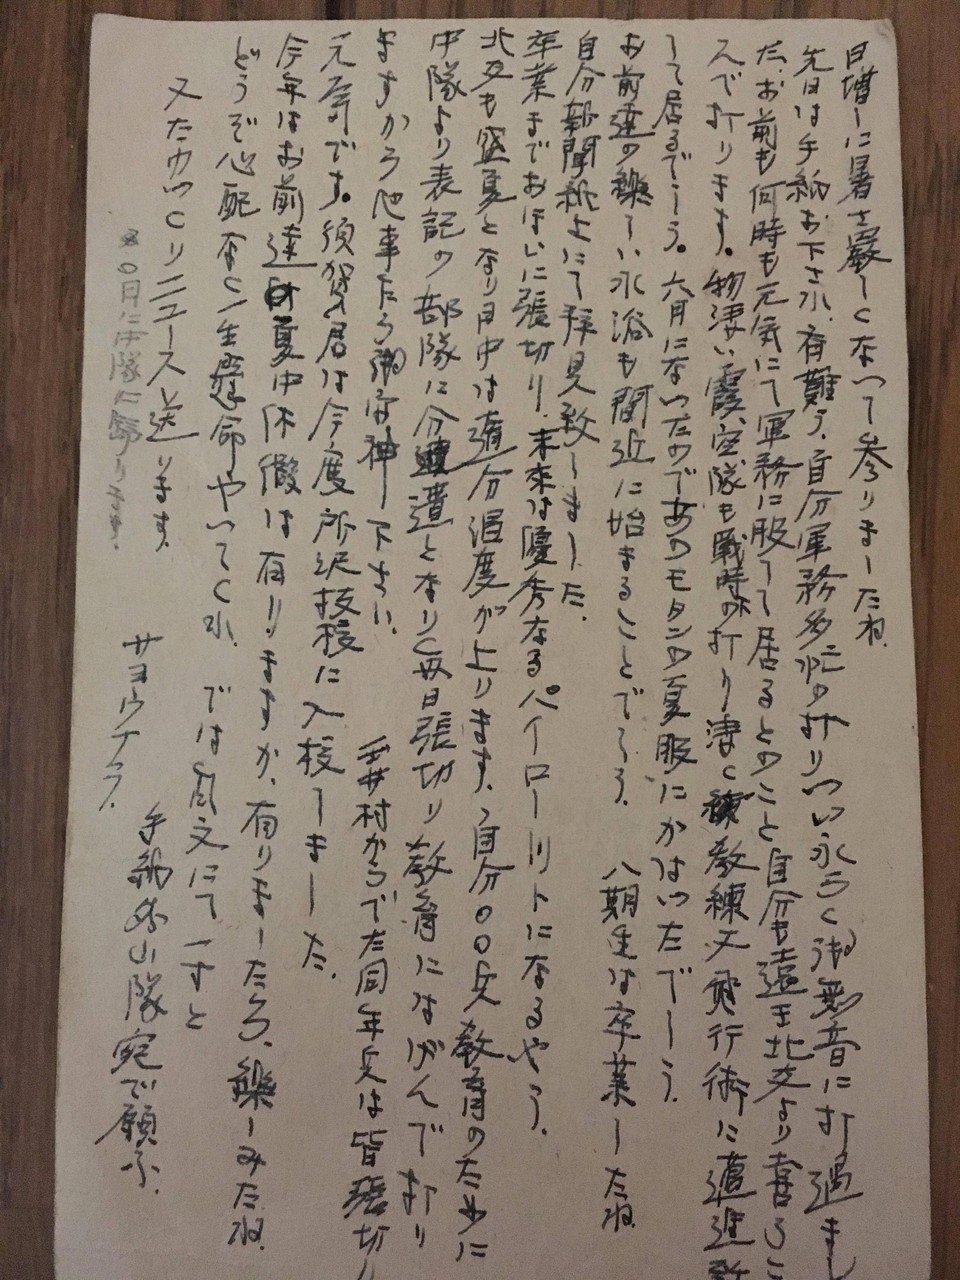 日増しに暑さ厳しくなつて参りましたね、
先日は手紙お下され、有難う、自分軍務多忙の為りつい永らく御無音に打過まし
た、お前も何時も元気にて軍務に服して居るとのこと自分も遠き北支より喜こ
んで打ります。物凄い霞空隊も戦時 打り凄く 教練又飛行術に邁進致
して居るでしう。六月になつたのであのモタンの夏服にかはいたでしう。
お前達の楽しい水浴も間近に始まることでしう、 八期生は卒業したね
自分新聞紙上にて拝見致しました、
卒業までおほいに張切り、未来は優秀なるパイロートになるやう、
北支も盛夏となり日中は 分温度が上ります、自分〇〇兵教育のために
中隊より表記の部隊に分遣となりく毎日張切り教育にはげんで打り
ますから他事たら御 下さい、 村からでた同年兵は皆張切り
元気です。須賀君は今度所沢 校に入校しました、
今年はお前達 夏中休暇は有りますか、有りましたら、楽しみたね、
どうぞ心配なく一生懸命やつてくれ、 では乱文にて すと
又たゆつくりニュース送ります、
サヨウナラ、 手紙 山隊宛で願ふ、
〇月に中隊に帰ります、